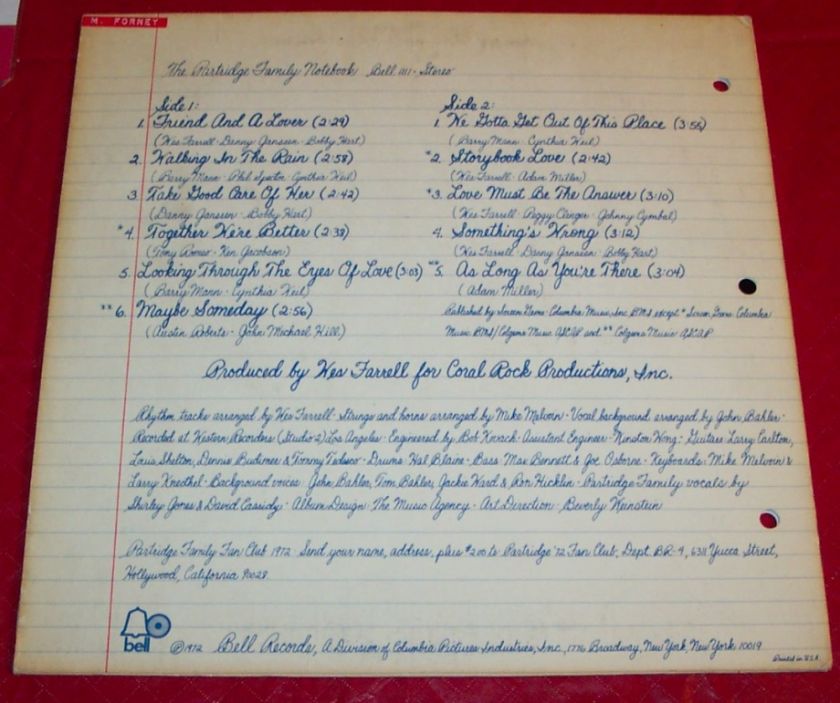 M. FORNEY
The Partridge Family Notebook Bell 1111 - Stereo
Side 1:
1. Friend And A Lover (2:29)
(Wes Farrell - Danny Janssen - Bobby Hart)
2. Walking In The Rain (2:58)
(Barry Mann - Phil Spector - Cynthia Weil)
3. Take Good Care Of Her (2:42)
(Danny Janssen - Bobby Hart)
*4. Together We're Better (2:38)
(Tony Romeo - Ken Jacobson)
5. Looking Through The Eyes Of Love (3:03)
(Barry Mann - Cynthia Weil)
**6. Maybe Someday (2:56)
(Austin Roberts - John Michael Hill)
Side 2:
1. We Gotta Get Out Of This Place (3:55)
(Barry Mann - Cynthia Weil)
*2. Storybook Love (2:42)
(Wes Farrell - Adam Miller)
*3. Love Must Be The Answer (3:10)
(Wes Farrell - Peggy Clinger - Johnny Cymbal)
4. Something's Wrong (3:12)
(Wes Farrell - Danny Janssen - Bobby Hart)
**5. As Long As You're There (3:04)
(Adam Miller)
Published by Screen Gems-Columbia Music, Inc. BMI except * Screen Gems-Columbia
Music BMI/Colgems Music ASCAP and ** Colgems Music ASCAP
Produced by Wes Farrell for Coral Rock Productions, Inc.
Rhythm tracks arranged by Wes Farrell - Strings and horns arranged by Mike Melvoin - Vocal background arranged by John Bahler -
Recorded at Western Recorders (Studio 2) Los Angeles - Engineered by Bob Kovach - Assistant Engineer - Winston Wong: Guitars Larry Carlton,
Louie Shelton, Dennis Budimer & Tommy Tedesco - Drums Hal Blaine - Bass Max Bennett & Joe Osborne - Keyboards: Mike Melvoin &
Larry Knechtel - Background voices: John Bahler, Tom Bahler, Jackie Ward & Ron Hicklin - Partridge Family vocals by
Shirley Jones & David Cassidy - Album Design: The Music Agency - Art Direction - Beverly Weinstein
Partridge Family Fan Club 1972 Send your name, address, plus $2.00 to Partridge '72 Fan Club, Dept. BR-4, 6311 Yucca Street,
Hollywood, California 90028.
bell
©1972 Bell Records, A Division of Columbia Pictures Industries, Inc., 1776 Broadway, New York, New York 10019
Printed in U.S.A.